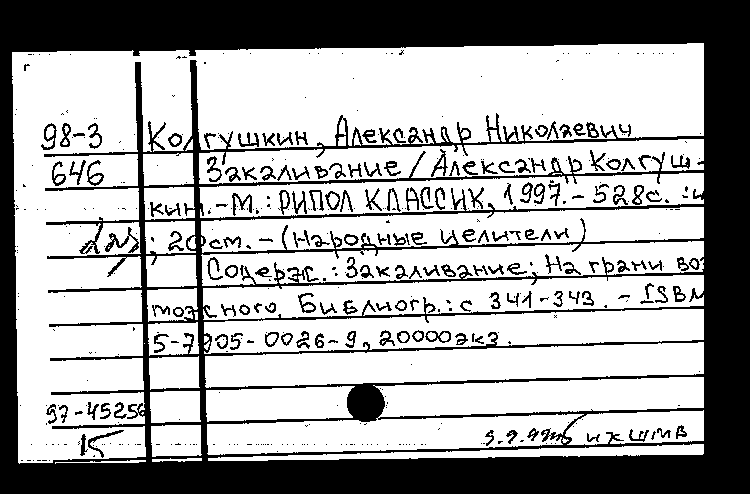 98-3 Колгушкин, Александр Николаевич
646 Закаливание / Александр Колгуш-
кин. - М.: РИПОЛ КЛАССИК, 1997. - 528с. : и
; 20 см. - (Народные целители)
Содерж.: Закаливание; На грани воз
можного. Библиогр.: с 341-343. - ISBN
5-7905-0026-9, 20000экз.
97-45256
15